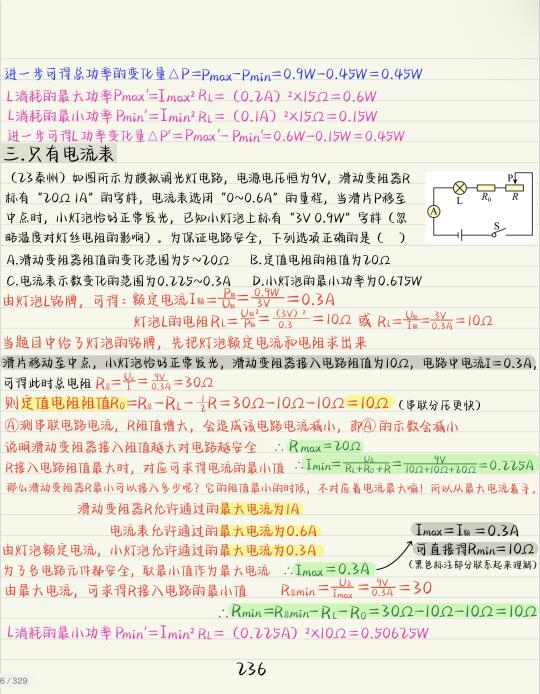 进一步可得总功率的变化量△P=Pmax-Pmin=0.9W-0.45W=0.45W
L消耗的最大功率Pmax'=Imax² RL=(0.2A)²×15Ω=0.6W
L消耗的最小功率Pmin'=Imin² RL=(0.1A)²×15Ω=0.15W
进一步可得L功率变化量△P'=Pmax'-Pmin'=0.6W-0.15W=0.45W
三.只有电流表
(23泰州)如图所示为模拟调光灯电路,电源电压恒为9V,滑动变阻器R
标有“20Ω 1A”的字样,电流表选用“0~0.6A”的量程,当滑片P移至
中点时,小灯泡恰好正常发光,已知小灯泡上标有“3V 0.9W”字样(忽
略温度对灯丝电阻的影响)。为保证电路安全,下列选项正确的是( )
A L R₀ P R S
A.滑动变阻器阻值的变化范围为5~20Ω B.定值电阻的阻值为20Ω
C.电流表示数变化的范围为0.225~0.3A D.小灯泡的最小功率为0.675W
由灯泡铭牌,可得:额定电流I额=P额/U额=0.9W/3V=0.3A
灯泡L的电阻RL=U额²/P额=(3V)²/0.3=10Ω 或 RL=U额/I额=3V/0.3A=10Ω
当题目中给了灯泡的铭牌,先把灯泡额定电流和电阻求出来
滑片移动至中点,小灯泡恰好正常发光,滑动变阻器接入电阻阻值为10Ω,电路中电流I=0.3A,
可得此时总电阻 R总=U总/I=9V/0.3A=30Ω
则定值电阻阻值R₀=R总-RL-½R=30Ω-10Ω-10Ω=10Ω (串联分压更快)
Ⓐ测串联电路电流,R阻值增大,会造成该电路电流减小,即Ⓐ的示数会减小
说明滑动变阻器接入阻值越大对电路越安全 ∴Rmax=20Ω
R接入电路阻值最大时,对应可求得电流的最小值 ∴Imin=U总/(RL+R₀+R)=9V/(10Ω+10Ω+20Ω)=0.225A
那么滑动变阻器R最小可以接入多少呢?它的阻值最小的时候,不对应着电流最大嘛!所以从最大电流着手。
滑动变阻器R允许通过的最大电流为1A
电流表允许通过的最大电流为0.6A
由灯泡额定电流,小灯泡允许通过的最大电流为0.3A
为了各电路元件都安全,取最小值作为最大电流 ∴Imax=0.3A
Imax=I额=0.3A
可直接得Rmin=10Ω
(黑色标注部分联系起来理解)
由最大电流,可求得R接入电路的最小值 R总min=U总/Imax=9V/0.3A=30
∴Rmin=R总min-RL-R₀=30Ω-10Ω-10Ω=10Ω
L消耗的最小功率Pmin'=Imin² RL=(0.225A)²×10Ω=0.50625W
236
6 / 329